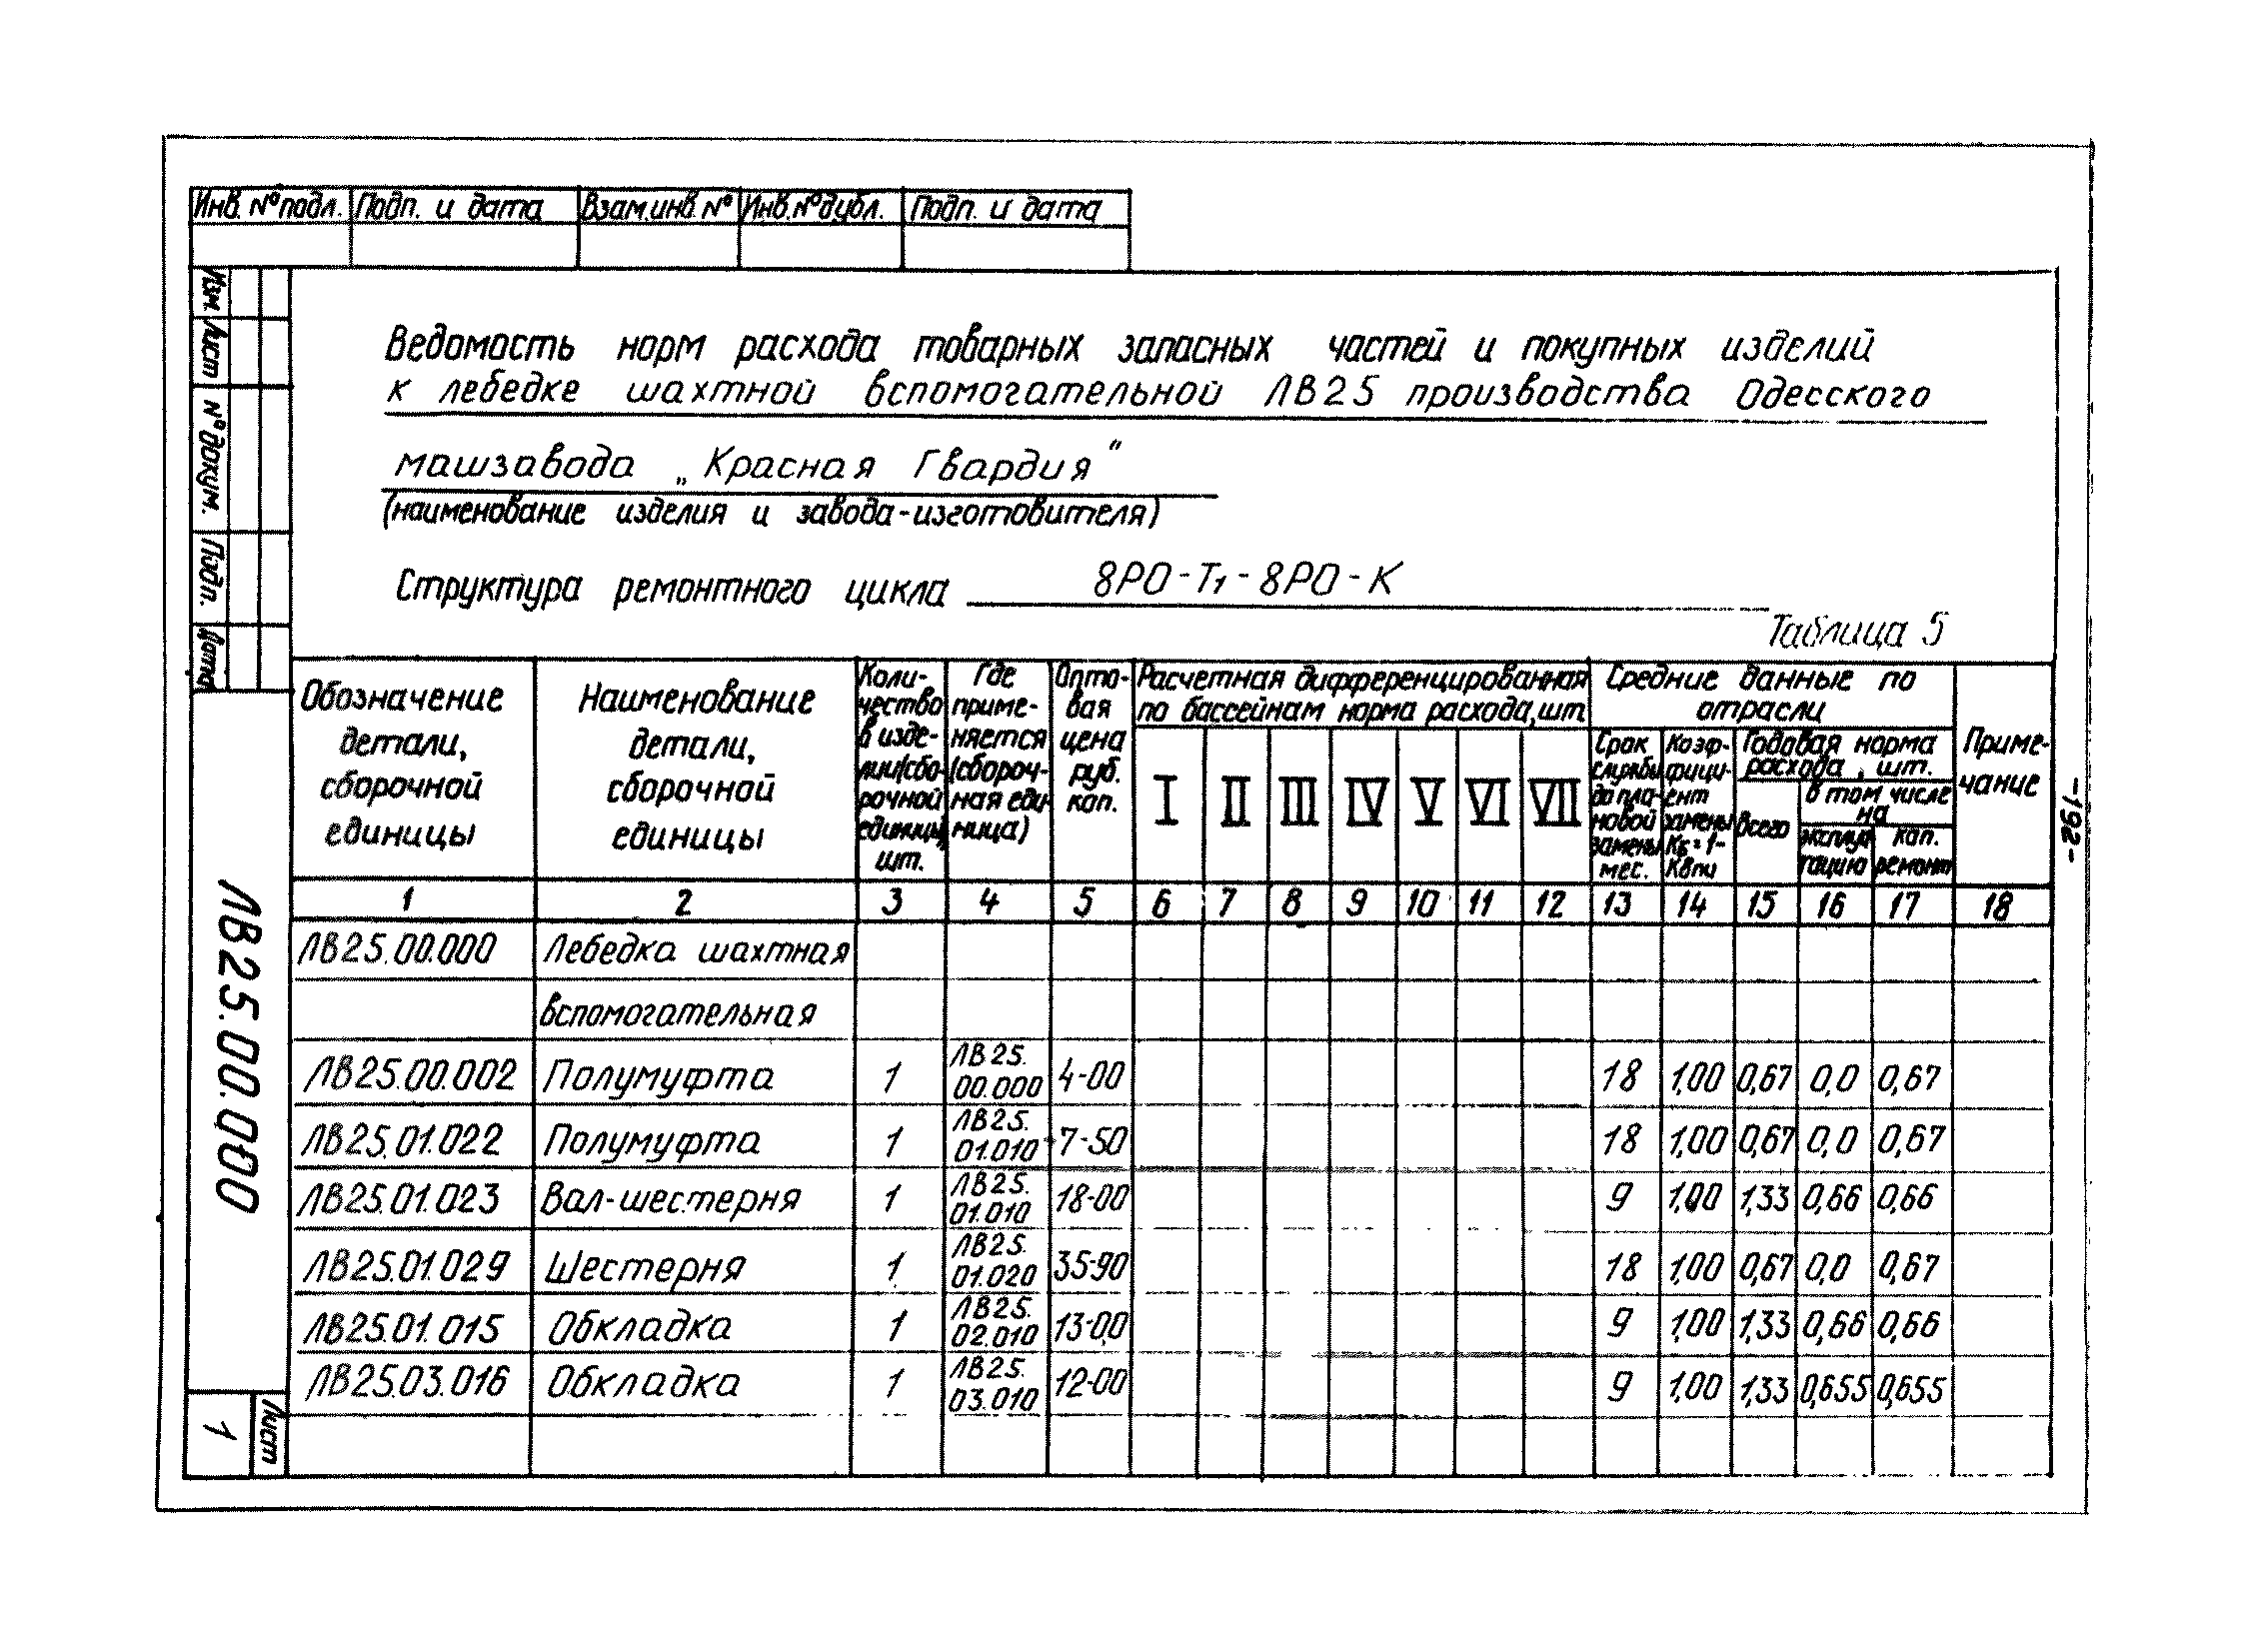 Инв. № подл. Подп. и дата Взам.инв. № Инв. № дубл. Подп. и дата
Изм. Лист № докум. Подп. Дата
Ведомость норм расхода товарных запасных частей и покупных изделий
к лебедке шахтной вспомогательной ЛВ25 производства Одесского
машзавода „Красная Гвардия“
(наименование изделия и завода-изготовителя)
Структура ремонтного цикла 8РО-Т1-8РО-К
Таблица 5
Обозначение
детали,
сборочной
единицы
Наименование
детали,
сборочной
единицы
Коли-
чество
в изде-
лии(сбо-
рочной
единицы),
шт.
Где
приме-
няется
(сбороч-
ная еди-
ница)
Опто-
вая
цена
руб.
коп.
Расчетная дифференцированная
по бассейнам норма расхода, шт.
I II III IV V VI VII
Средние данные по
отрасли
Срок
службы
до пла-
новой
замены
мес.
Коэф-
фици-
ент
замены
Кб=1-
Квпи
Годовая норма
расхода, шт.
всего
в том числе
на
эксплуа
тацию
кап.
ремонт
Приме-
чание
1 2 3 4 5 6 7 8 9 10 11 12 13 14 15 16 17 18
ЛВ25.00.000 Лебедка шахтная
вспомогательная
ЛВ25.00.002 Полумуфта 1 ЛВ25. 00.000 4-00 18 1,00 0,67 0,0 0,67
ЛВ25.01.022 Полумуфта 1 ЛВ25. 01.010 7-50 18 1,00 0,67 0,0 0,67
ЛВ25.01.023 Вал-шестерня 1 ЛВ25. 01.010 18-00 9 1,00 1,33 0,66 0,66
ЛВ25.01.029 Шестерня 1 ЛВ25. 01.020 35-90 18 1,00 0,67 0,0 0,67
ЛВ25.01.015 Обкладка 1 ЛВ25. 02.010 13-00 9 1,00 1,33 0,66 0,66
ЛВ25.03.016 Обкладка 1 ЛВ25. 03.010 12-00 9 1,00 1,33 0,655 0,655
ЛВ25.00.000
Лист
1
-192-